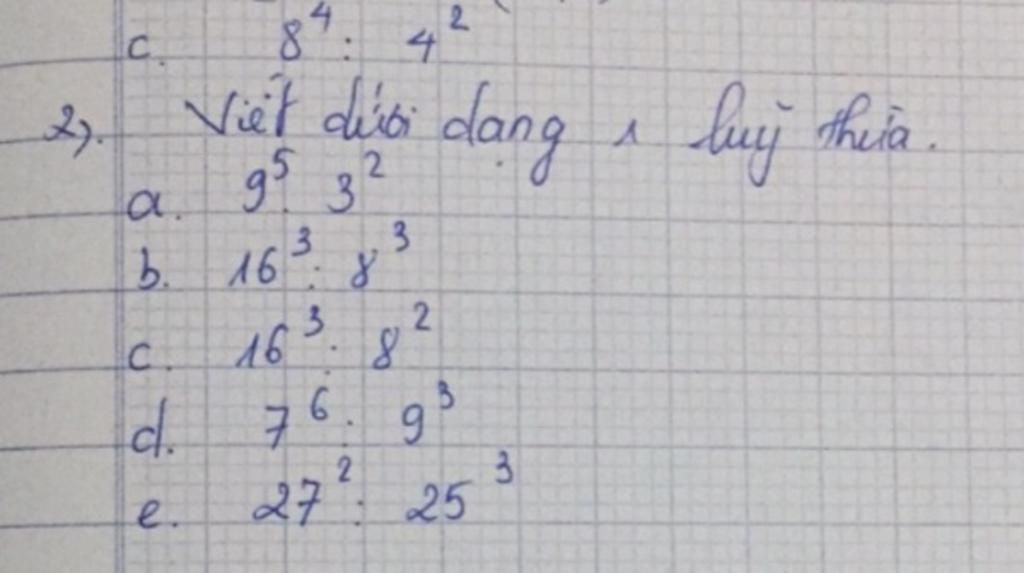 c. 8⁴ : 4²
2). Viết dưới dạng 1 luỹ thừa.
a. 9⁵ . 3²
b. 16³ : 8³
c. 16³ . 8²
d. 7⁶ . 9³
e. 27² : 25³